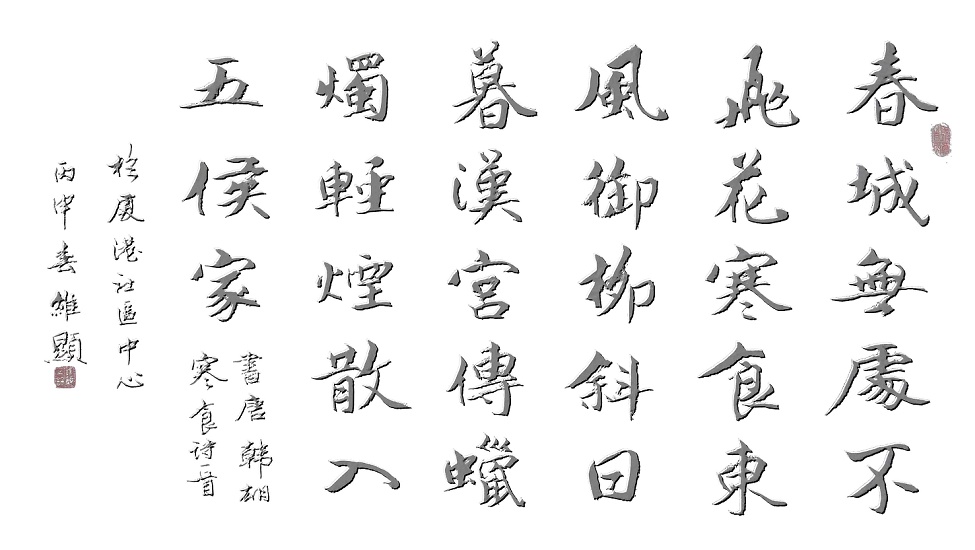 春城無處不
飛花寒食東
風御柳斜日
暮漢宮傳蠟
燭輕煙散入
五侯家
書唐韩翃
寒食诗一首
於厦港社區中心
丙申春維顯